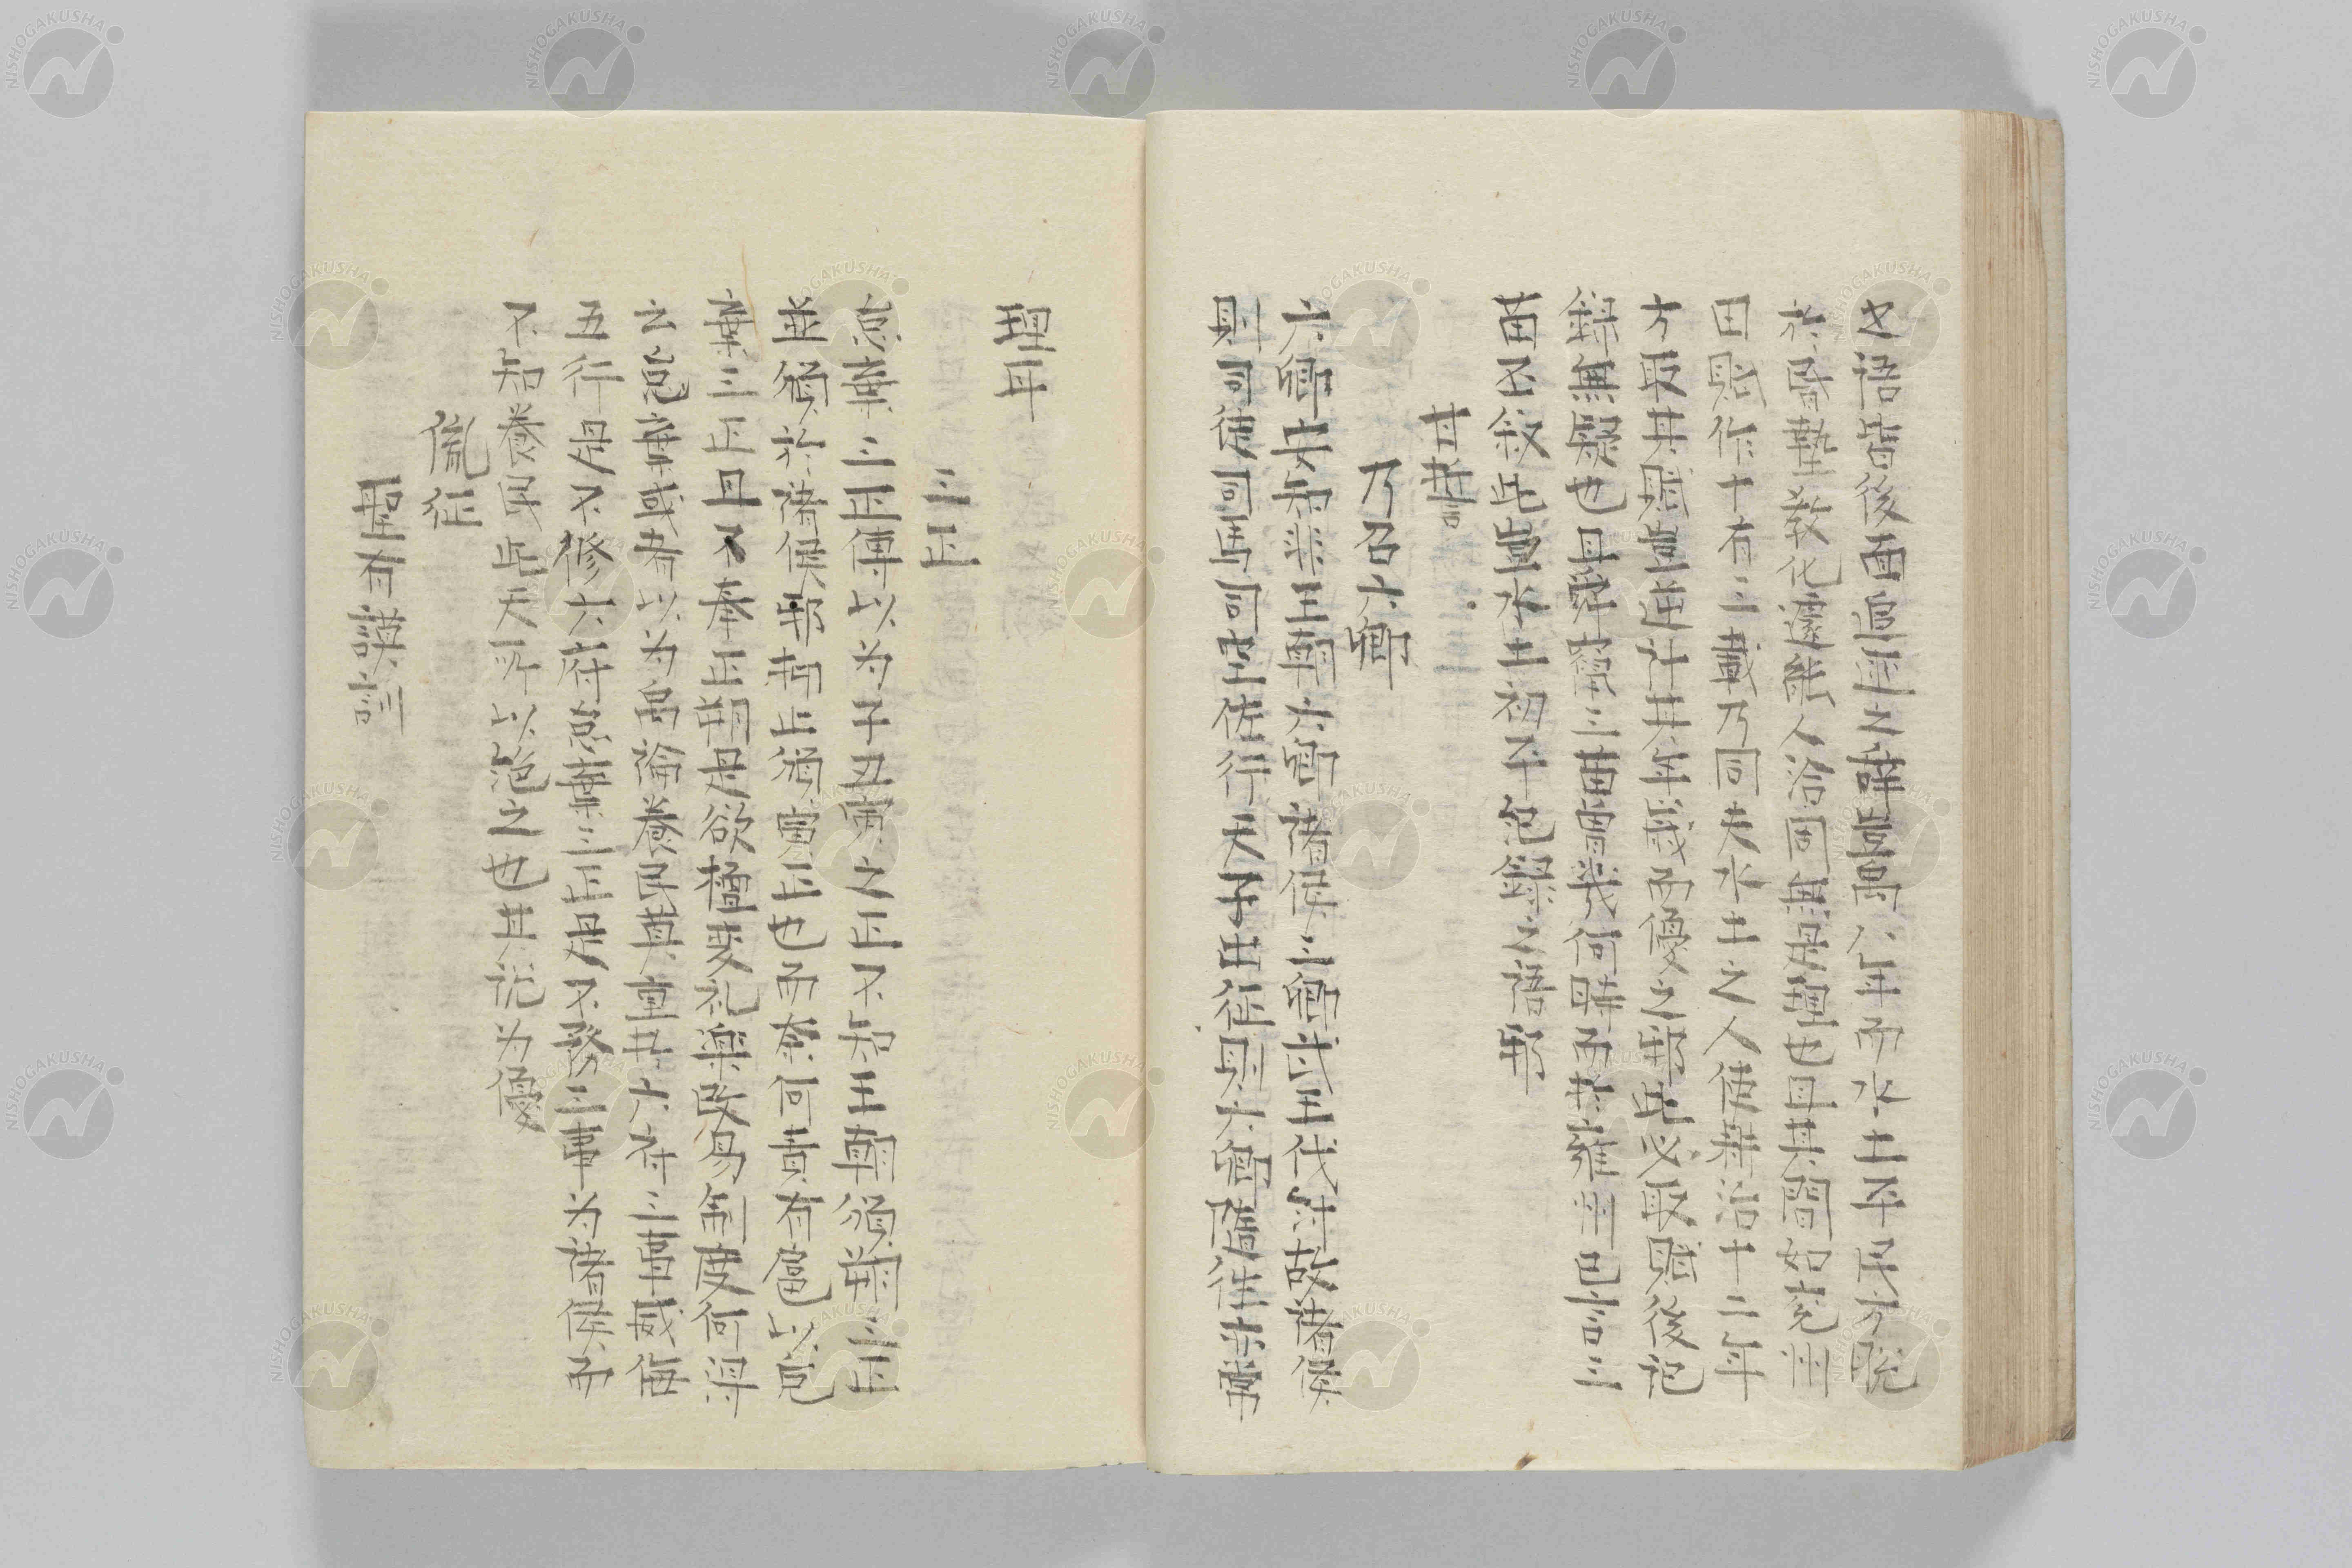 之語皆後面追述之辭豈禹八年而水土平民方脫
於昏墊教化遽能入洽固無是理也且其間如兗州
田賦作十有三載乃同夫水土之人使耕治十三年
方取其賦豈逆計其年哉而優之耶此必取賦後記
錄無疑也且舜竄三苗曾幾何時而於雍州已言三
苗丕敘此豈水土初平包錄之語耶
甘誓
乃召六卿
六卿安知非王朝六卿諸侯三卿武王伐紂故諸侯
則司徒司馬司空佐行天子出征則六卿隨往未嘗
理耳
三正
怠棄三正傳以为子丑寅之正不知王朝頒朔三正
並頒於諸侯耶抑止頒寅正也而奈何責有扈以怠
棄三正且不奉正朔是欲擅变礼樂改易制度何得
云怠棄或者以为禹論養民其重於六府三事威侮
五行是不修六府怠棄三正是不務三事为諸侯而
不知養民此天所以絕之也其說为優
胤征
聖有謨訓